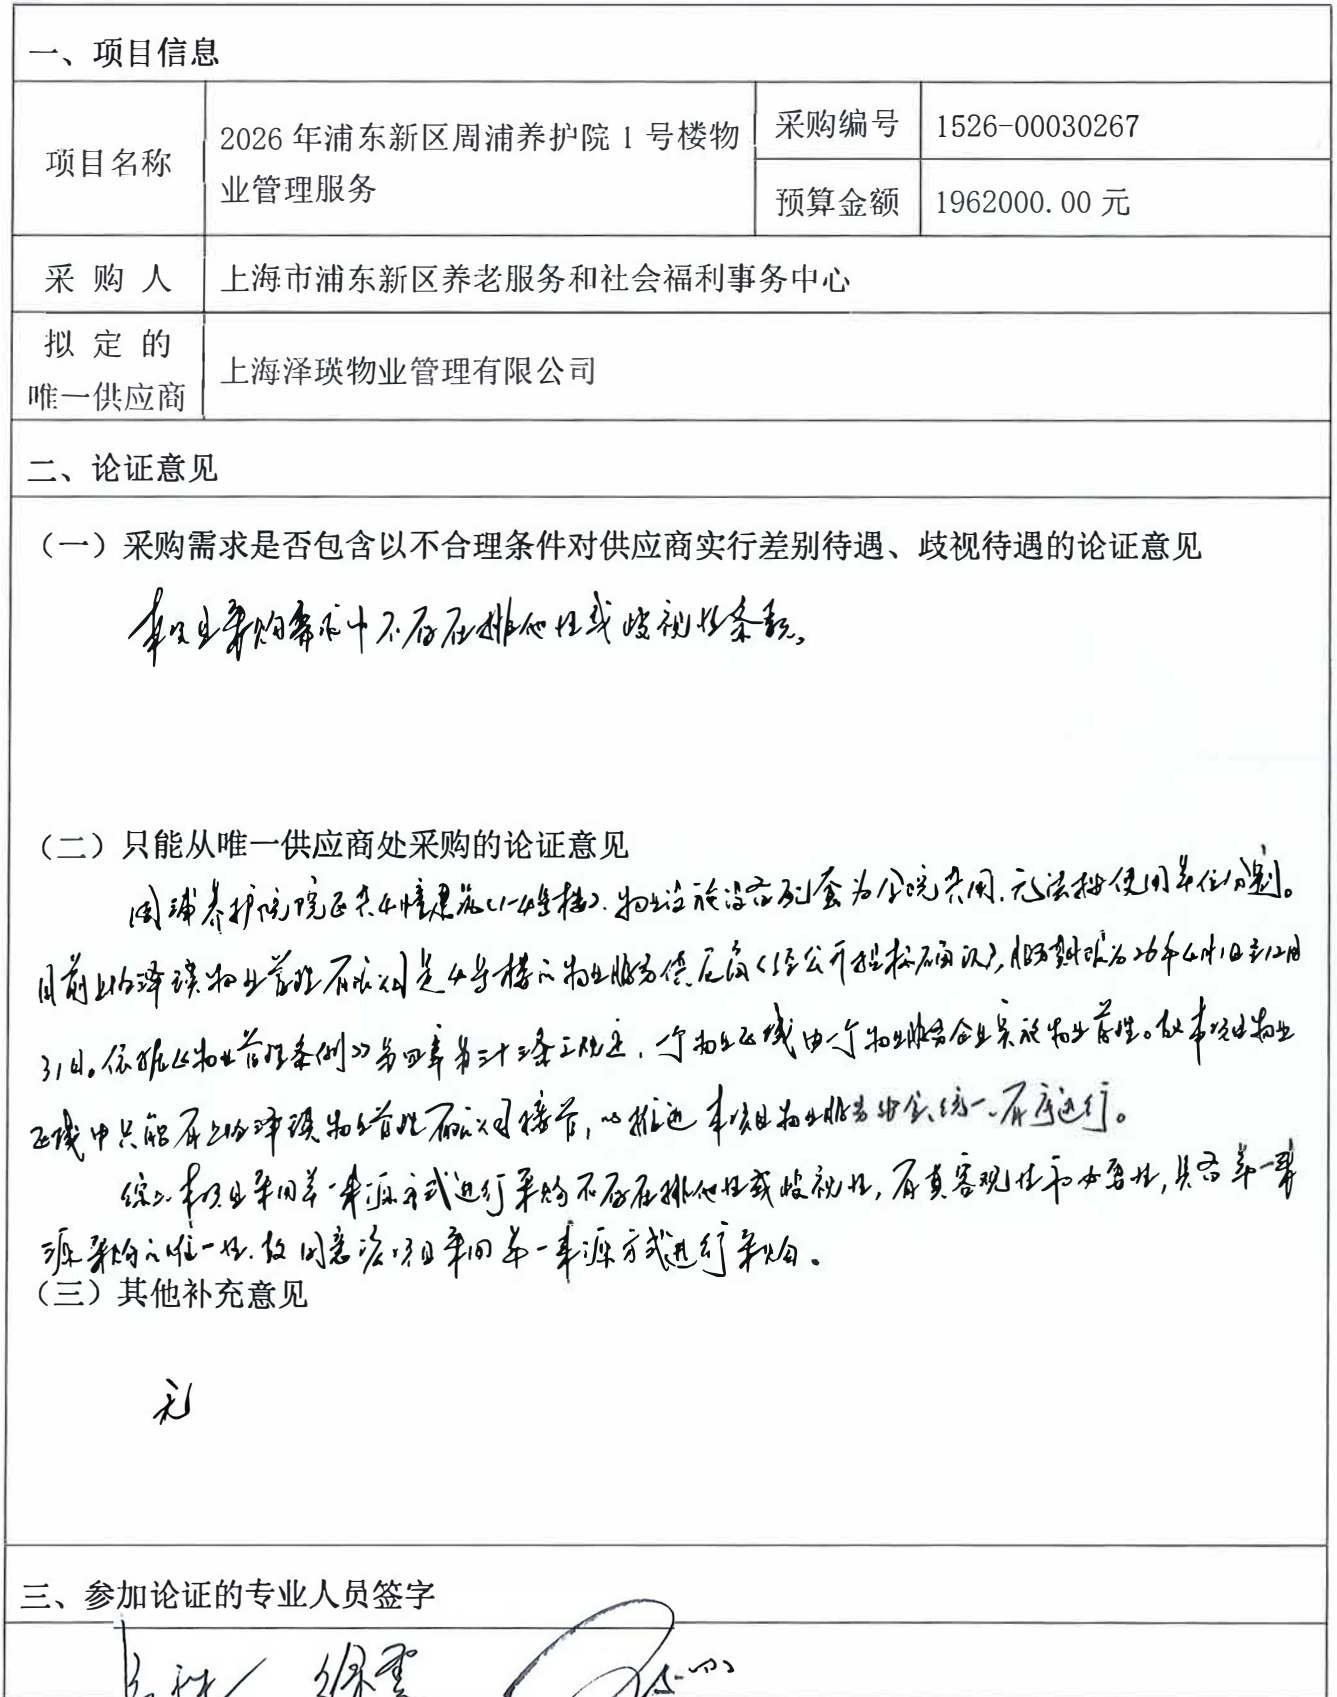 一、项目信息
项目名称
2026 年浦东新区周浦养护院 1 号楼物
业管理服务
采购编号
1526-00030267
预算金额
1962000.00 元
采 购 人
上海市浦东新区养老服务和社会福利事务中心
拟 定 的
唯一供应商
上海泽瑛物业管理有限公司
二、论证意见
（一）采购需求是否包含以不合理条件对供应商实行差别待遇、歧视待遇的论证意见
本项目采购需求中不存在排他性或歧视性条款。
（二）只能从唯一供应商处采购的论证意见
周浦养护院院区共4幢建筑(1-4号楼)，物业设施设备配套为全院共用，无法按使用单位分割。
目前上海泽瑛物业管理有限公司是4号楼的物业服务供应商(经公开招标确认)，服务期限为26年4月1日至12月
31日。依据《物业管理条例》第四章第三十三条之规定，一个物业区域由一个物业服务企业实施物业管理。故本项目物业
区域中只能有上海泽瑛物业管理有限公司接管，以推进本项目物业服务安全、统一、有序进行。
综上本项目采用单一来源方式进行采购不存在排他性或歧视性，有其客观性和必要性，具备单一来
源采购的唯一性，故同意该项目采用单一来源方式进行采购。
（三）其他补充意见
无
三、参加论证的专业人员签字